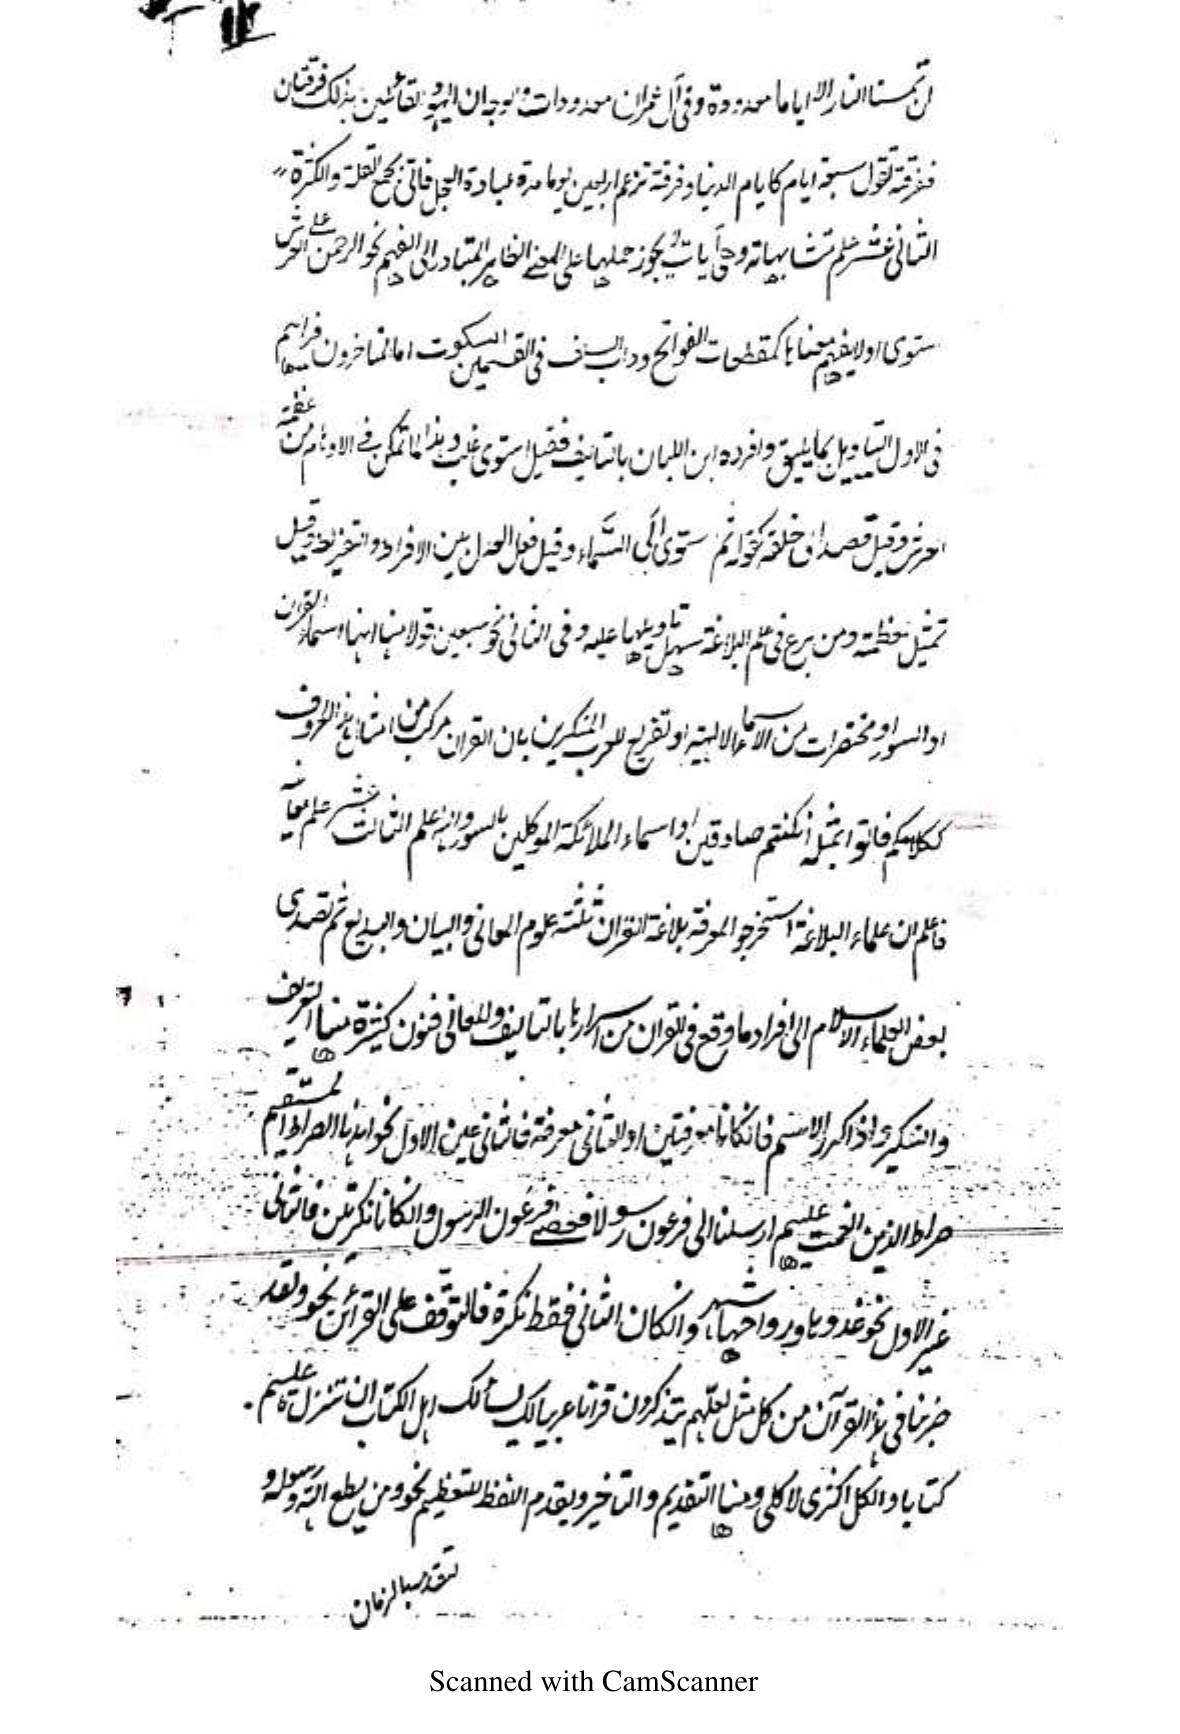 لن تمسنا النار الا اياما معدودة وفى آل عمران معدودات والوجه ان اليهود القائلين بذلك فرقتان
ففرقة تقول سبعة ايام كايام الدنيا وفرقة تزعم اربعين يوما مدة عبادة العجل فاتى بجمع القلة والكثرة
الثانى عشر علم متشابهاته وهى آيات لا يجوز حملها على المعنى الظاهر المتبادر الى الفهم نحو الرحمن على العرش
استوى او لا يفهم معناها كمقطعات الفواتح وداب السلف فى القسمين السكوت اما المتاخرون فرايهم
فى الاول التاويل بما يليق وافرده ابن اللبان بالتاليف فقيل استوى غلب وهذا لما تمكن فى الاوهام من عظمة
العرش وقيل قصد الى خلقه كقوله ثم استوى الى السماء وقيل فعل العدل بين الافراط والتفريط وقيل
تمثيل لعظمته ومن برع فى علم البلاغة سهل تاويلها عليه وفى الثانى نحو سبعين قولا منها انها اسماء القران
او السور او مختصرات من الاسماء الالهية او تقريع للعرب المنكرين بان القران مركب من امثال هذه الحروف
ككلامكم فاتوا بمثله ان كنتم صادقين او اسماء الملائكة الموكلين بالسور وانه علم الثالث عشر علم معانيه
فاعلم ان علماء البلاغة استخرجوا لمعرفة بلاغة القران ثلثة علوم المعانى والبيان والبديع ثم تصدى
بعض العلماء الاسلام الى افراد ما وقع فى القران من اسرارها بالتاليف وللمعانى فنون كثيرة منها التعريف
والتنكير واذا كرر الاسم فان كانا معرفتين او الثانى معرفة فالثانى عين الاول نحو اهدنا الصراط المستقيم
صراط الذين انعمت عليهم ارسلنا الى فرعون رسولا فعصى فرعون الرسول وان كانا نكرتين فالثانى
غير الاول نحو غدوها شهر ورواحها شهر وان كان الثانى فقط نكرة فالتوقف على القرائن نحو ولقد
ضربنا فى هذا القرآن من كل مثل لعلهم يتذكرون قرانا عربيا لك يسألك اهل الكتاب ان تنزل عليهم
كتابا والكل اكثرى لا كلى ومنها التقديم والتاخير ويقدم اللفظ للتعظيم نحو ومن يطع الله ورسوله و
Scanned with CamScanner